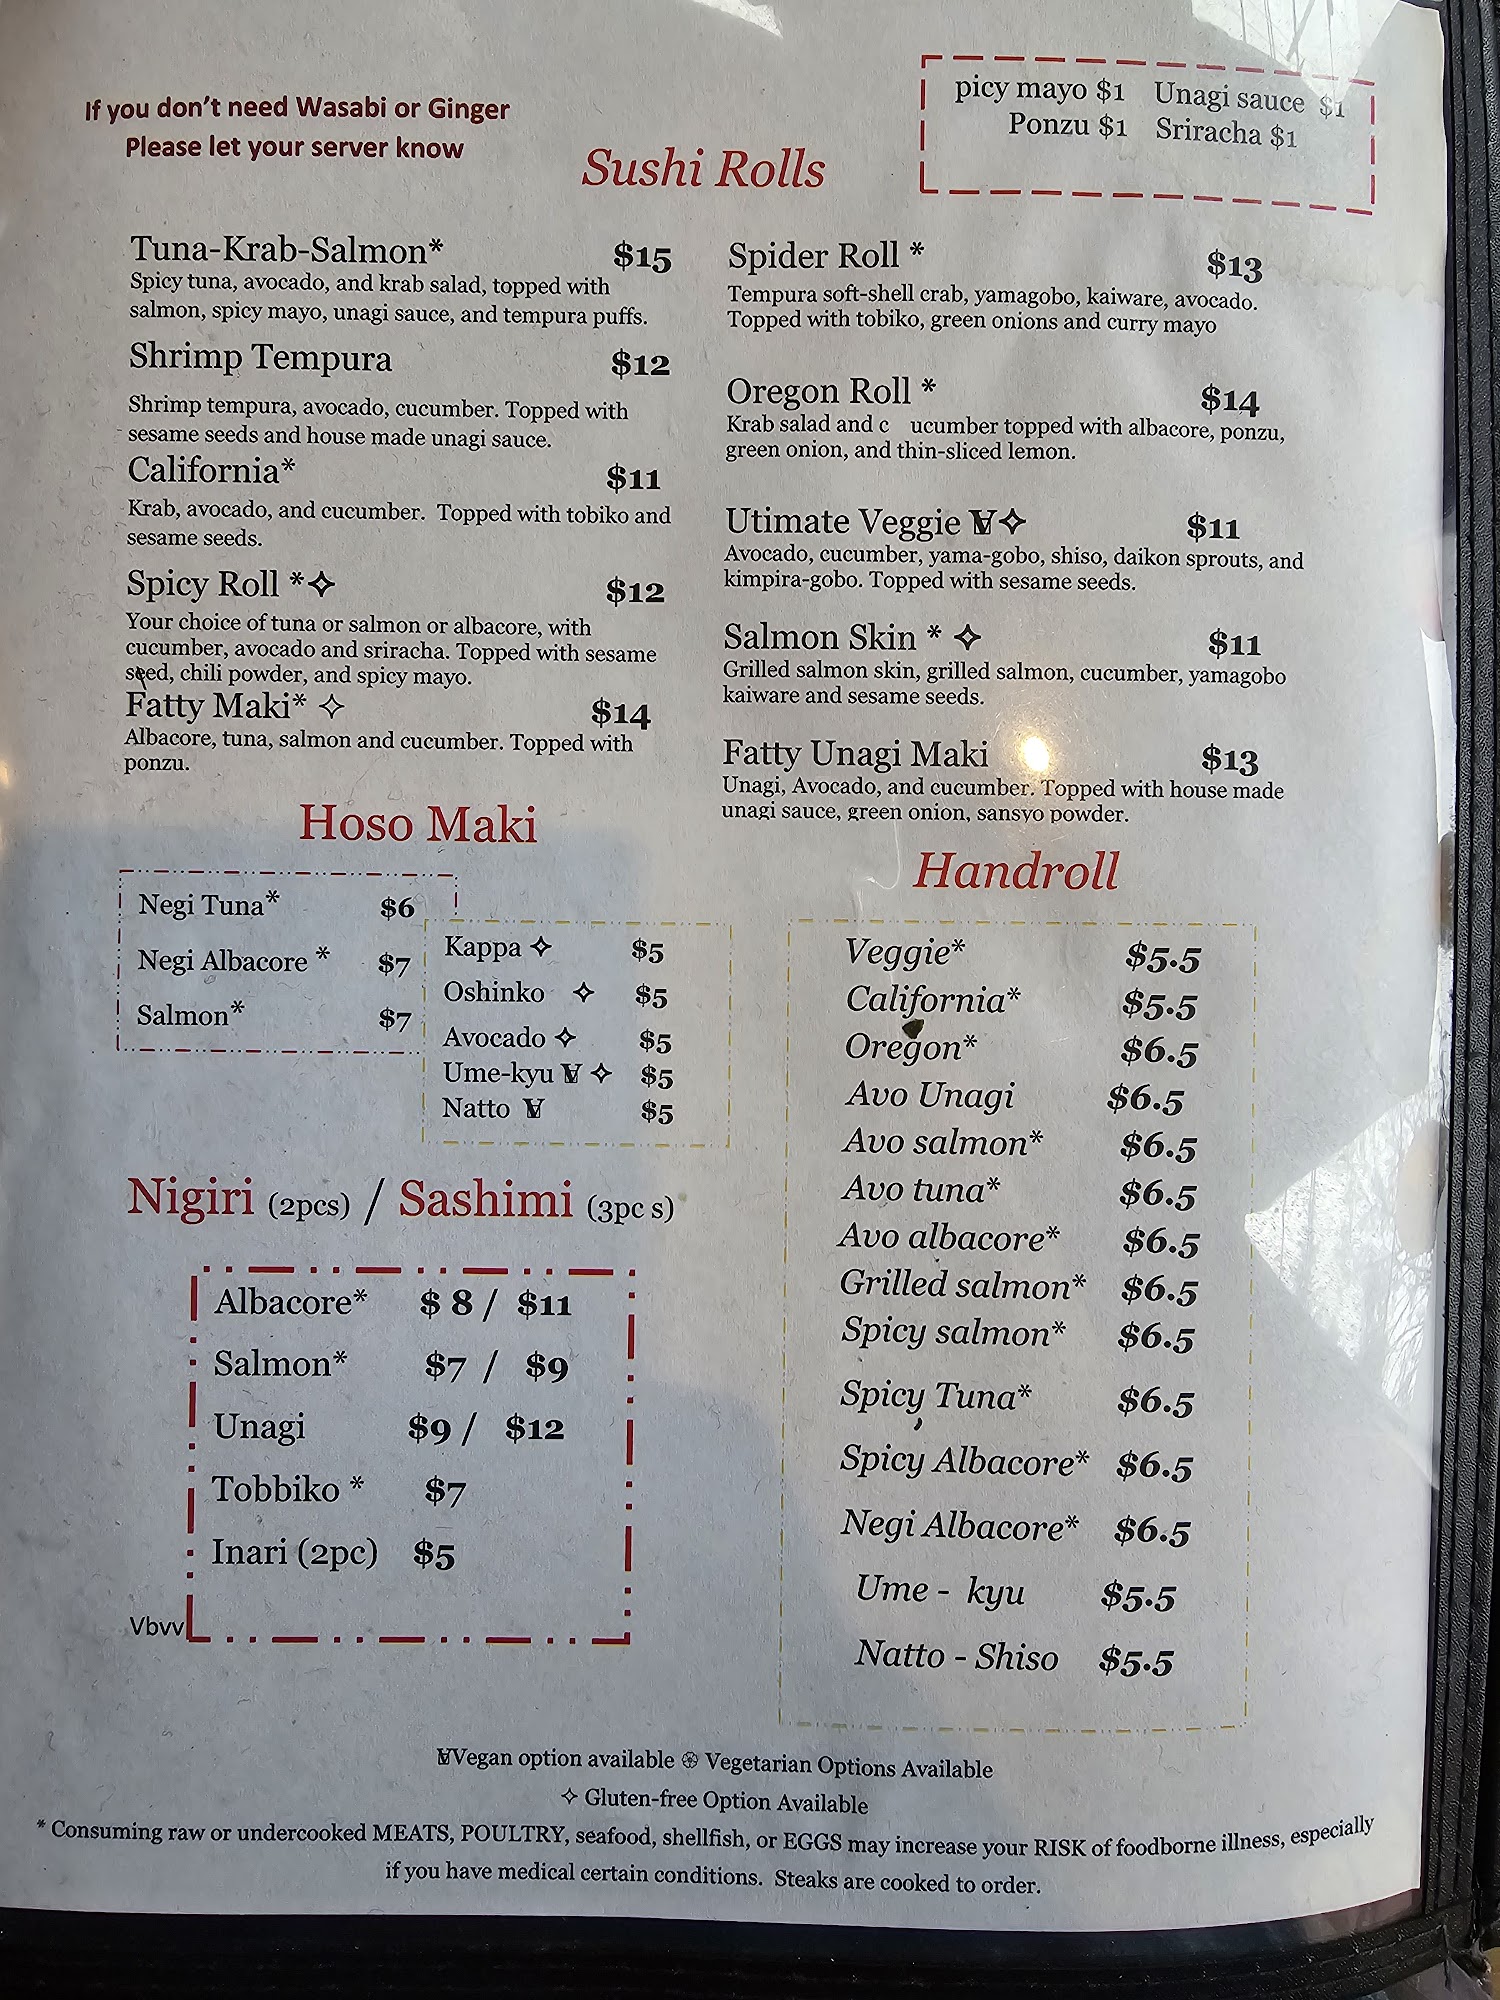 If you don't need Wasabi or Ginger
Please let your server know
picy mayo $1 Unagi sauce $1
Ponzu $1 Sriracha $1
Sushi Rolls
Tuna-Krab-Salmon* $15
Spicy tuna, avocado, and krab salad, topped with
salmon, spicy mayo, unagi sauce, and tempura puffs.
Shrimp Tempura $12
Shrimp tempura, avocado, cucumber. Topped with
sesame seeds and house made unagi sauce.
California* $11
Krab, avocado, and cucumber. Topped with tobiko and
sesame seeds.
Spicy Roll *✧ $12
Your choice of tuna or salmon or albacore, with
cucumber, avocado and sriracha. Topped with sesame
seed, chili powder, and spicy mayo.
Fatty Maki* ✧ $14
Albacore, tuna, salmon and cucumber. Topped with
ponzu.
Spider Roll * $13
Tempura soft-shell crab, yamagobo, kaiware, avocado.
Topped with tobiko, green onions and curry mayo
Oregon Roll * $14
Krab salad and c ucumber topped with albacore, ponzu,
green onion, and thin-sliced lemon.
Utimate Veggie V✧ $11
Avocado, cucumber, yama-gobo, shiso, daikon sprouts, and
kimpira-gobo. Topped with sesame seeds.
Salmon Skin * ✧ $11
Grilled salmon skin, grilled salmon, cucumber, yamagobo
kaiware and sesame seeds.
Fatty Unagi Maki $13
Unagi, Avocado, and cucumber. Topped with house made
unagi sauce, green onion, sansyo powder.
Hoso Maki
Negi Tuna* $6
Negi Albacore * $7
Salmon* $7
Kappa ✧ $5
Oshinko ✧ $5
Avocado ✧ $5
Ume-kyu V ✧ $5
Natto V $5
Nigiri (2pcs) / Sashimi (3pc s)
Albacore* $ 8 / $11
Salmon* $7 / $9
Unagi $9 / $12
Tobbiko * $7
Inari (2pc) $5
Vbvv
Handroll
Veggie* $5.5
California* $5.5
Oregon* $6.5
Avo Unagi $6.5
Avo salmon* $6.5
Avo tuna* $6.5
Avo albacore* $6.5
Grilled salmon* $6.5
Spicy salmon* $6.5
Spicy Tuna* $6.5
Spicy Albacore* $6.5
Negi Albacore* $6.5
Ume - kyu $5.5
Natto - Shiso $5.5
VVegan option available ֍ Vegetarian Options Available
✧ Gluten-free Option Available
* Consuming raw or undercooked MEATS, POULTRY, seafood, shellfish, or EGGS may increase your RISK of foodborne illness, especially
if you have medical certain conditions. Steaks are cooked to order.